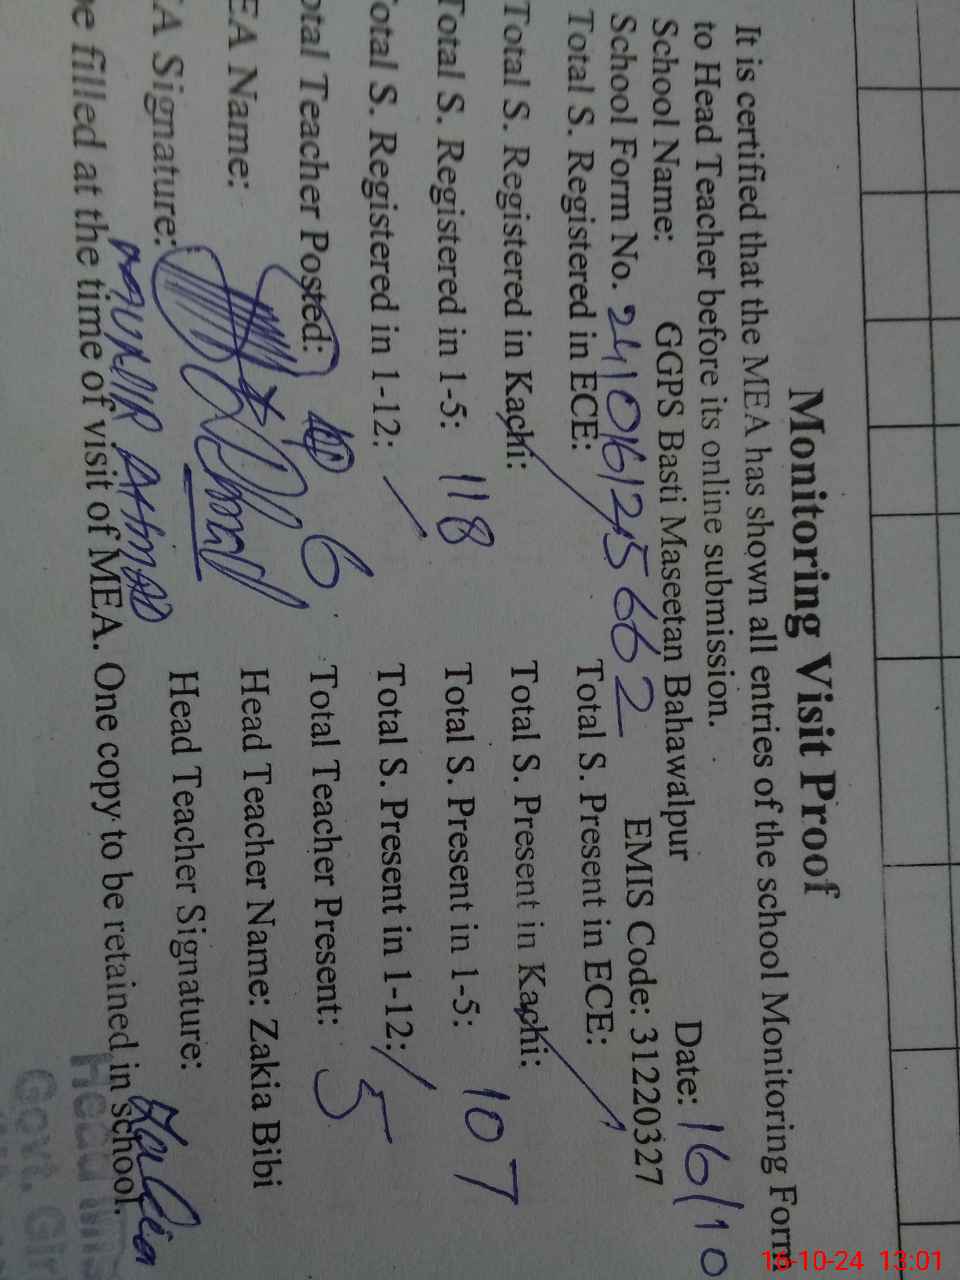 Monitoring Visit Proof
It is certified that the MEA has shown all entries of the school Monitoring Form
to Head Teacher before its online submission.
School Name: GGPS Basti Maseetan Bahawalpur Date: 16/10
School Form No. 2410161225662 EMIS Code: 31220327
Total S. Registered in ECE: Total S. Present in ECE:
Total S. Registered in Kachi: Total S. Present in Kachi:
Total S. Registered in 1-5: 118 Total S. Present in 1-5: 107
otal S. Registered in 1-12: Total S. Present in 1-12:
otal Teacher Posted: 6 Total Teacher Present: 5
EA Name: Head Teacher Name: Zakia Bibi
A Signature: Head Teacher Signature: Zakia
MUNIR AHMAD
e filled at the time of visit of MEA. One copy to be retained in school.
Govt. Gir
16-10-24 13:01